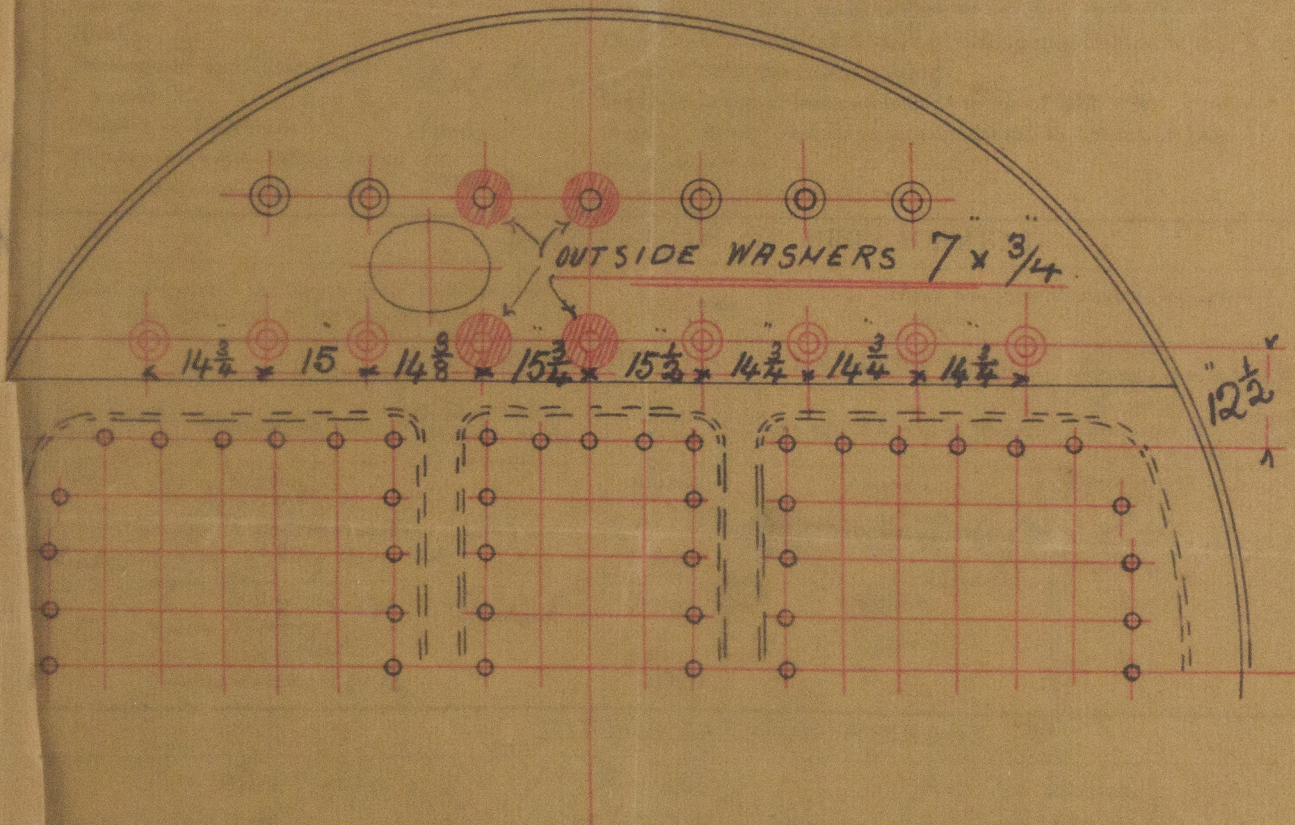 OUTSIDE WASHERS 7" x 3/4"
14 3/4" 15" 14 3/8 15 3/4" 15 1/2" 14 3/4" 14 3/4" 14 3/4"
12 1/2"